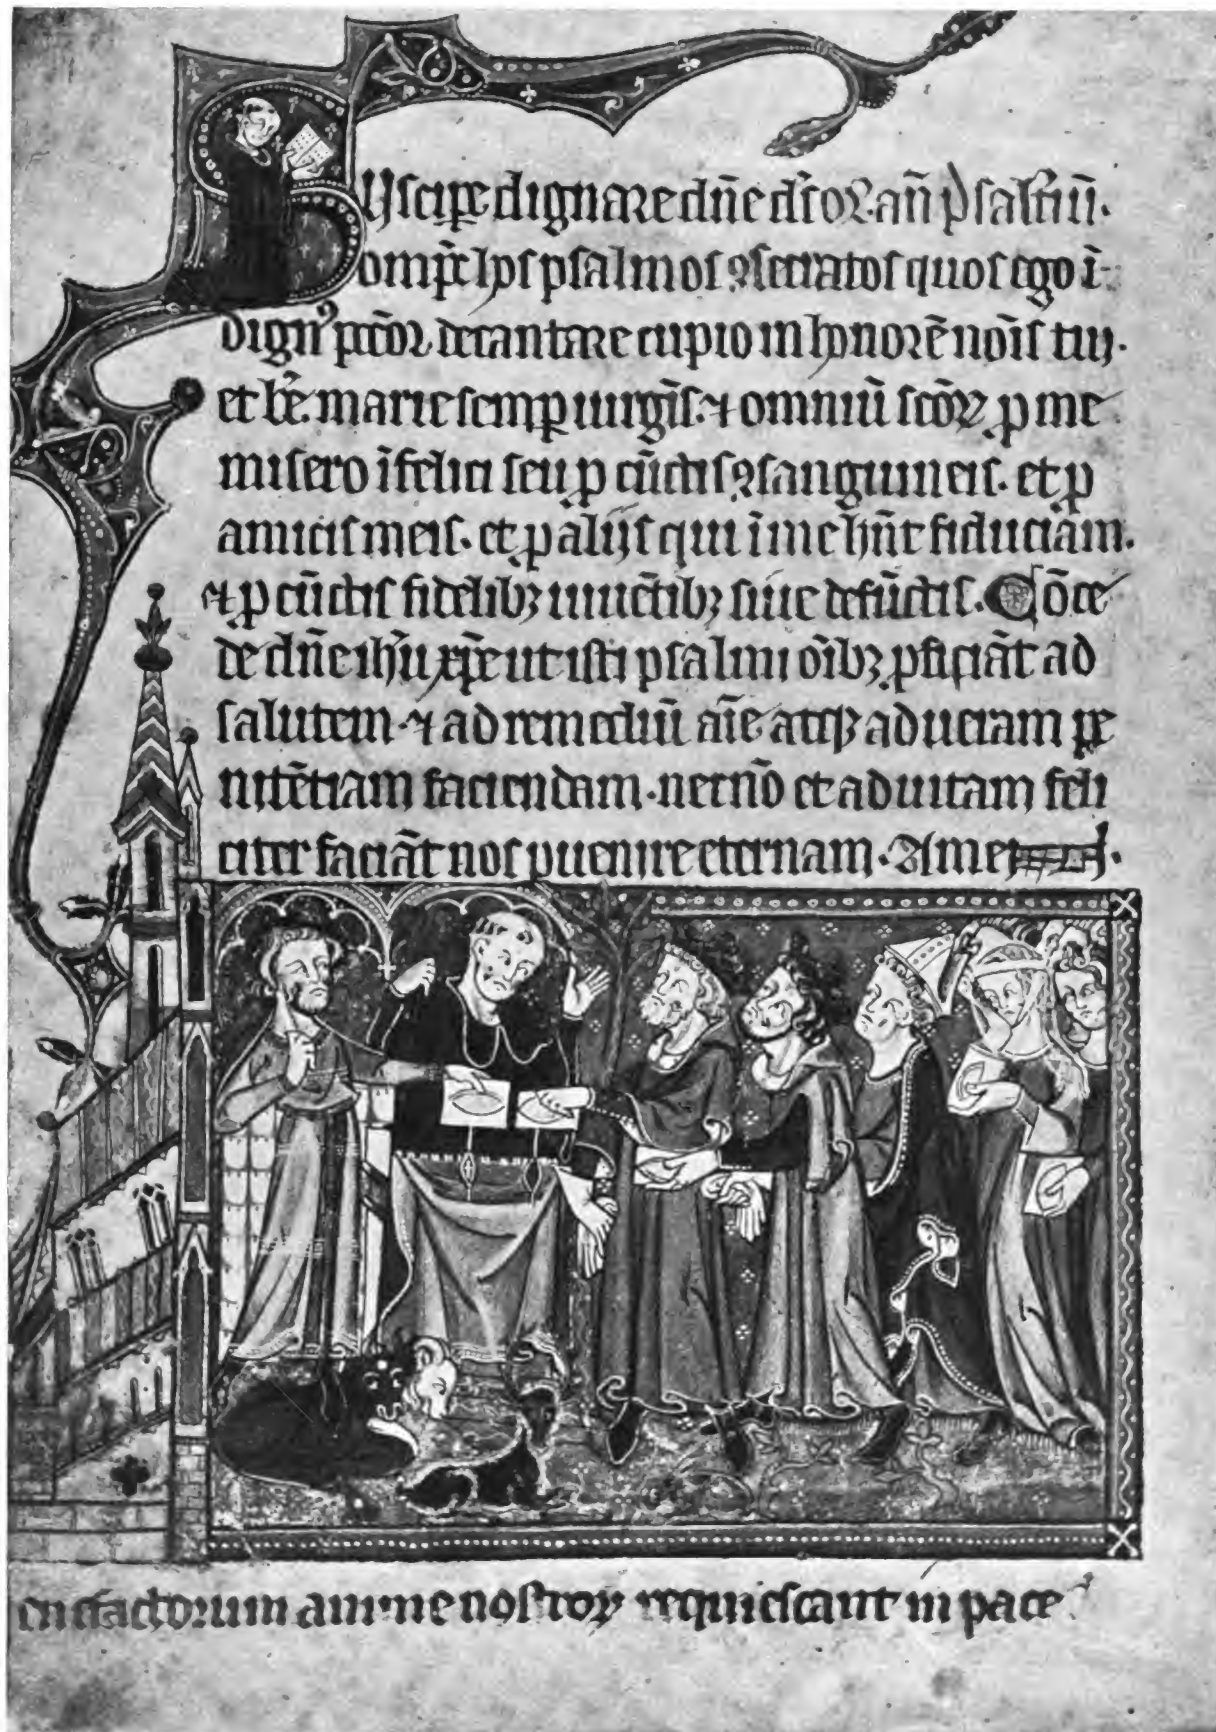 Suscipe dignare dn̄e ds̄ oꝝ. an̄ psalt̄iū.
omp̄t hos psalmos ꝯsecratos quos ego ī
dignꝰ pctōr decantare cupio in honorē noīs tui.
et bt̄e. marie semp uirgīs. ⁊ omniū scōꝝ ꝑ me
misero īfelici seu ꝑ cūctis ꝯsanguineis. et ꝑ
amicis meis. et ꝑ alijs qui ī me hn̄t fiduciam.
⁊ ꝑ cūctis fidelibꝫ uiuētibꝫ siue defūctis. Cōce
de dn̄e ih̄u xp̄e ut isti psalmi oībꝫ ꝓficiāt ad
salutem. ⁊ ad remediū aīe atqꝫ ad ueram pe
nitētiam faciendam. necnō et ad uitam feli
citer faciāt nos puenire eternam. Amen.
enefactorum anime nostroꝝ requiescant in pace